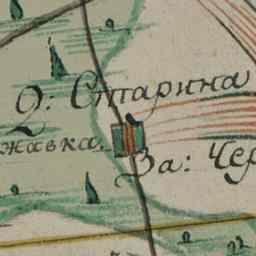 Д: Старина
жавка.
За: Чер